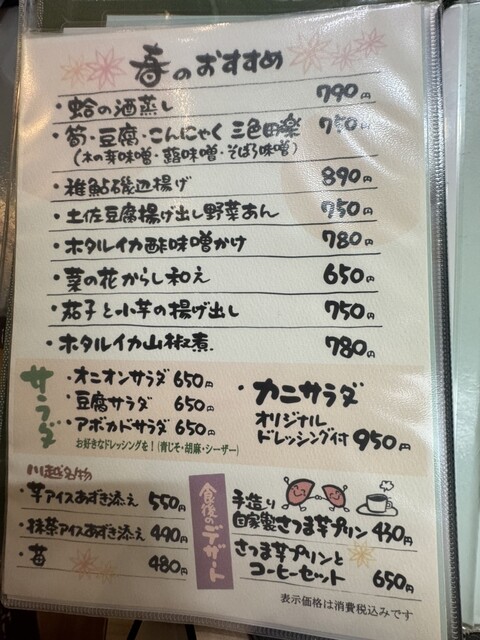 春のおすすめ
・蛤の酒蒸し 790円
・筍・豆腐・こんにゃく 三色田楽 750円
(木の芽味噌・蕗味噌・そぼろ味噌)
・稚鮎磯辺揚げ 890円
・土佐豆腐揚げ出し野菜あん 750円
・ホタルイカ酢味噌かけ 780円
・菜の花からし和え 650円
・茄子と小芋の揚げ出し 750円
・ホタルイカ山椒煮 780円
サラダ
・オニオンサラダ 650円
・豆腐サラダ 650円
・アボカドサラダ 650円
お好きなドレッシングを!(青じそ・胡麻・シーザー)
・カニサラダ
オリジナル
ドレッシング付 950円
川越名物
・芋アイスあずき添え 550円
・抹茶アイスあずき添え 490円
・苺 480円
食後のデザート
手造り
自家製さつま芋プリン 430円
さつま芋プリンと
コーヒーセット 650円
表示価格は消費税込みです